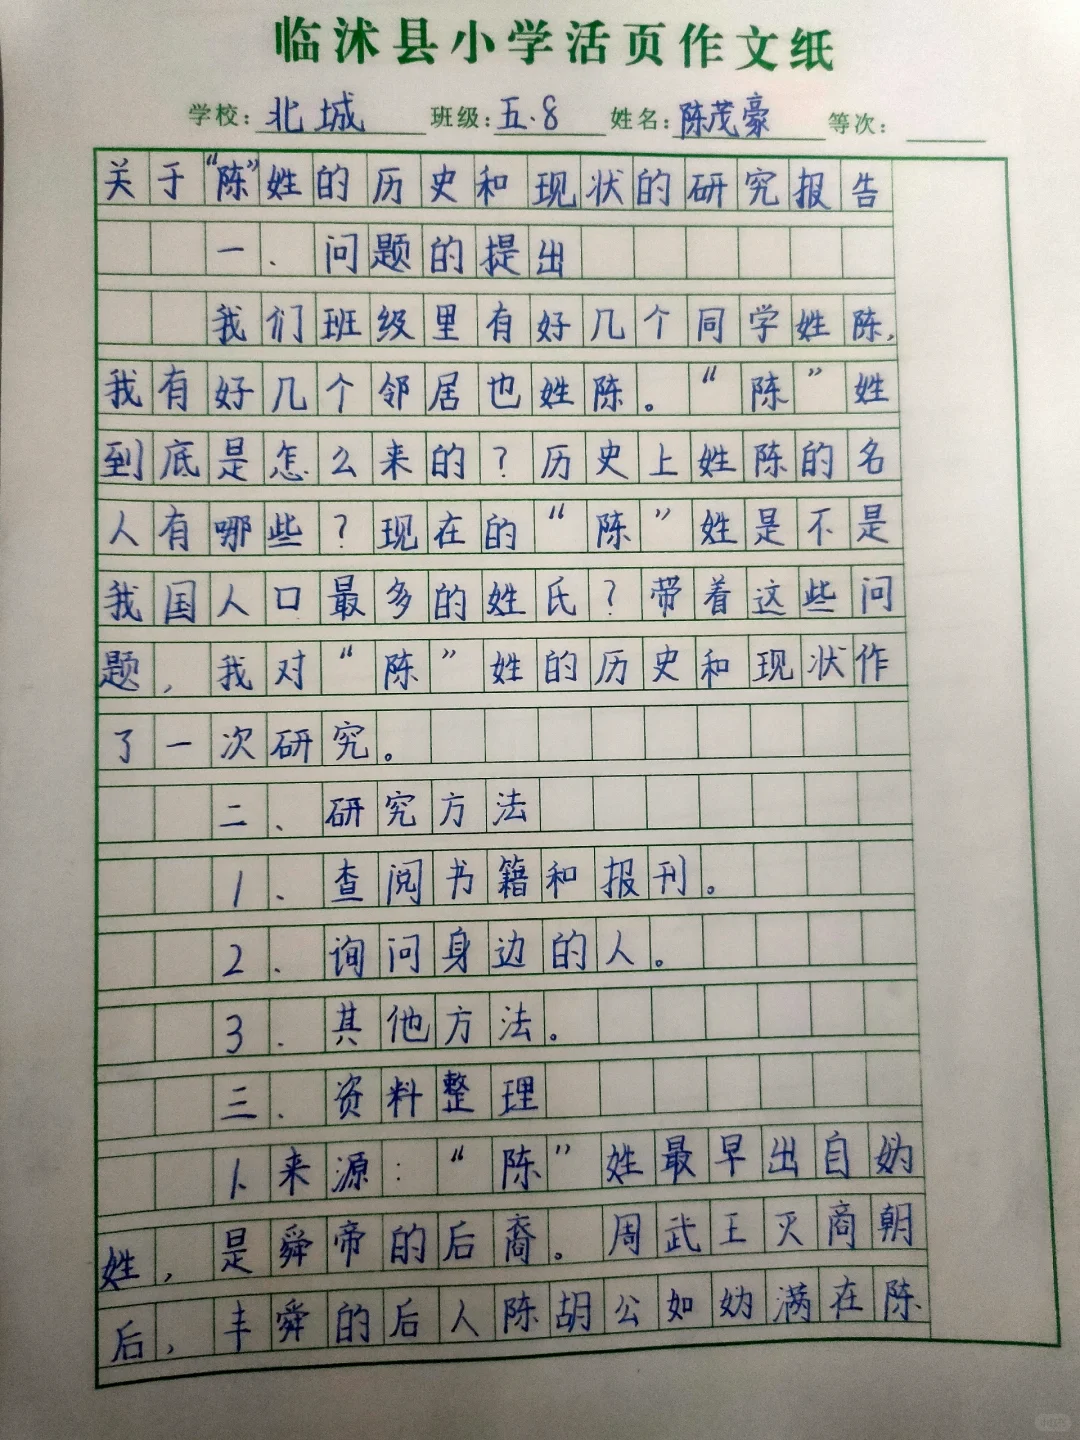 临沭县小学活页作文纸
学校：北城 班级：五.8 姓名：陈茂豪 等次：
关于“陈”姓的历史和现状的研究报告
一、问题的提出
我们班级里有好几个同学姓陈，
我有好几个邻居也姓陈。“陈”姓
到底是怎么来的？历史上姓陈的名
人有哪些？现在的“陈”姓是不是
我国人口最多的姓氏？带着这些问
题，我对“陈”姓的历史和现状作
了一次研究。
二、研究方法
1、查阅书籍和报刊。
2、询问身边的人。
3、其他方法。
三、资料整理
1、来源：“陈”姓最早出自妫
姓，是舜帝的后裔。周武王灭商朝
后，丰舜的后人陈胡公如妫满在陈